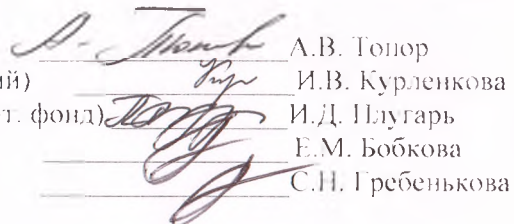 А.В. Топор
ий) И.В. Курленкова
т. фонд) И.Д. Плугарь
Е.М. Бобкова
С.Н. Гребенькова